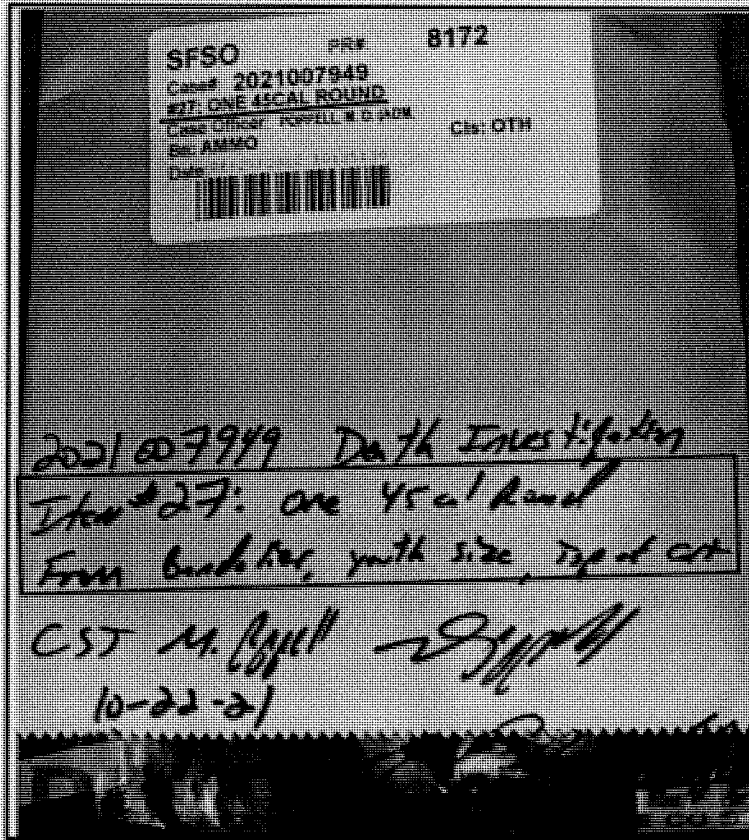 SFSO PR# 8172
Case# 2021007949
#27: ONE 45CAL ROUND
Case Officer: POPPELL, M. O. (ADM.
Cls: OTH
AMMO
Date
2021007949 Death Investigation
Item #27: one 45 cal Round
From bandolier, youth size, top of cart
CST M. Poppell
10-22-21